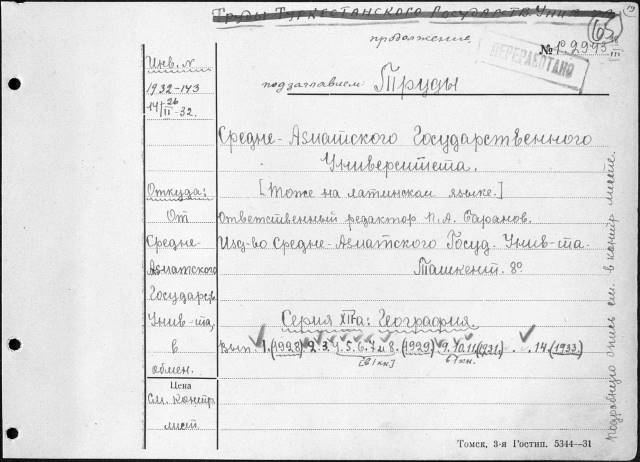 Труды Туркестанского Государств. Унив-та
65
продолжение
№ 12943
ПЕРЕРАБОТАНО
Инв. №
1932-143
14 26/II-32.
под заглавием Труды
Средне-Азиатского Государственного
Университета.
Откуда:
[Тоже на латинском языке.]
От
Ответственный редактор П. А. Баранов.
Средне-
Изд-во Средне-Азиатского Госуд. Унив-та.
Азиатского
Ташкент. 8°
Государств.
Серия XII-а: География.
Унив-та,
в
Вып. 1. (1928) 2. 3. 4. 5. 6. 7 и 8. (1929) 9. 10. 11. (1931) . . 14. (1933.)
[в 1 кн.] в 1 кн.
обмен.
Цена
См. контр.
лист.
подробную опись см. в контр. листе.
Томск, 3-я Гостип. 5344—31